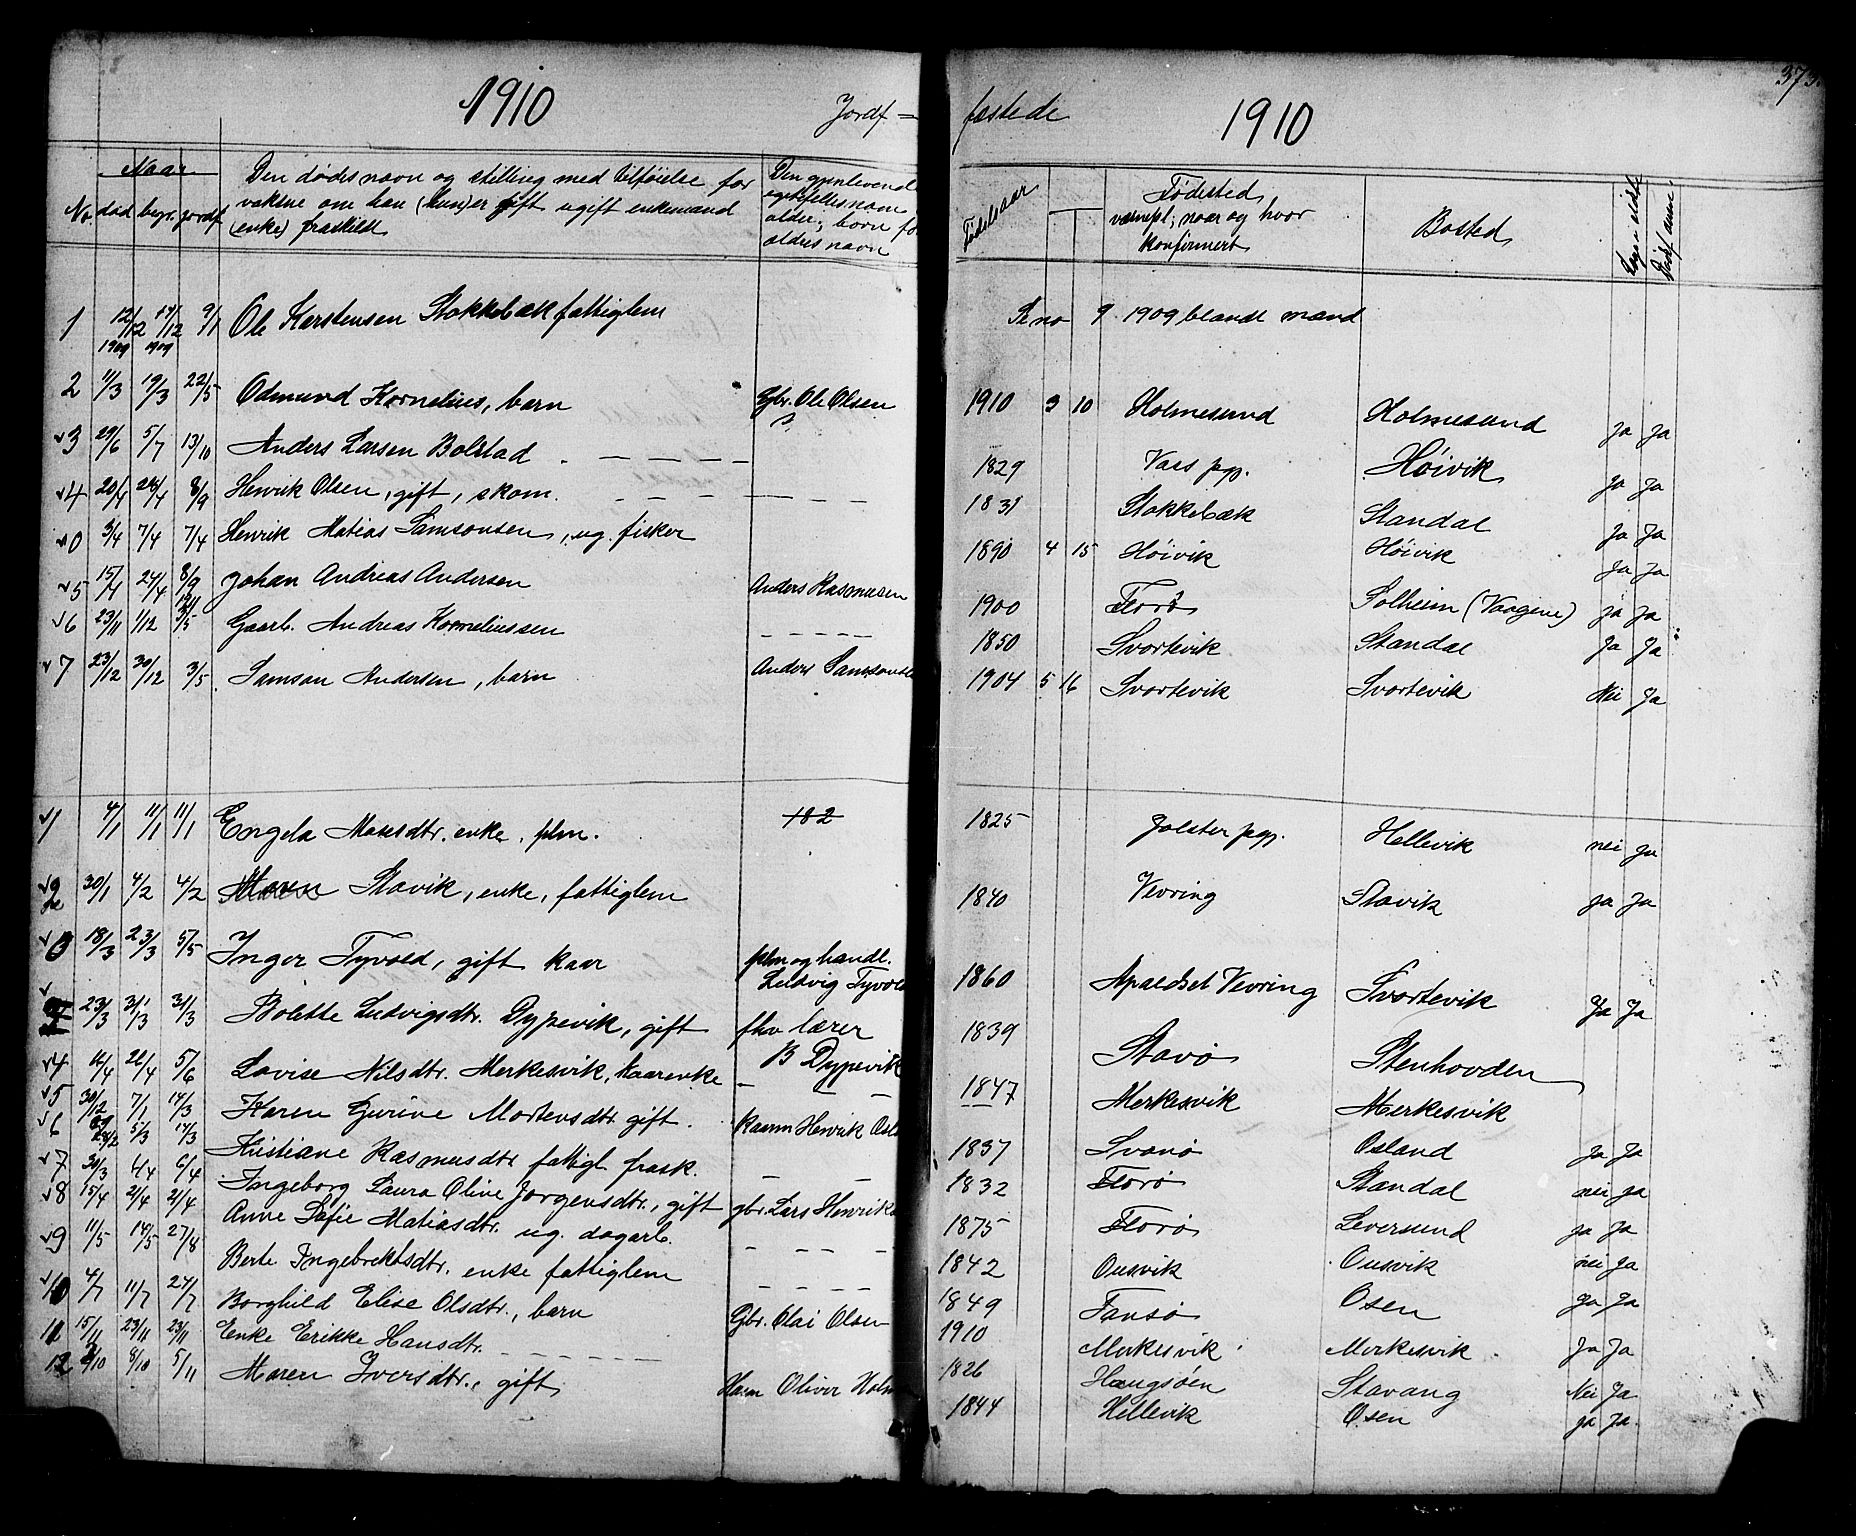 1910 Jordf =
Naar
No. död begr. jordf.
Den dödes navn og stilling med tilföielse for
voksne om han (hun) er gift ugift enkemand
(enke) fraskilt
Den gjenlevende
egtefelles navn
alder; born for
aldres navn
1 12/12 1909 17/12 1909 9/1 Ole Karstensen Stokkebæk fattiglem
2 11/3 19/3 22/5 Odmund Kornelius, barn Gbr. Ole Olsen
?
3 29/6 5/7 13/10 Anders Larsen Bolstad
4 20/4 28/4 8/9 Henrik Olsen, gift, skom.
0 3/4 7/4 7/4 Henrik Matias Samsonsen, ug. fisker
5 15/4 24/4 8/9 Johan Andreas Andersen Anders Rasmusen
6 23/11 1/12 3/5 Gaarb. Andreas Korneliussen
7 23/12 30/12 3/5 Samson Andersen, barn Anders Samsonse
1 4/1 11/1 11/1 Engela Monsdtr. enke, plm. 182
2 30/1 4/2 4/2 Maren Stavik, enke, fattiglem
3 18/3 23/3 5/5 Inger Tyvold, gift kaar plm og handl.
Ludvig Tyvold
23/3 31/3 31/3 Bolette Ludvigsdtr. Dypevik, gift fhv lærer
B Dypevik
4 16/4 22/4 5/6 Lovise Nilsdtr. Merkesvik, kaarenke
5 30/12 7/1 14/3 Karen Gurine Mortensdtr gift. kaarm Henrik Ols
6 24/2 5/3 14/3 Kristiane Rasmusdtr fattigl frask.
7 30/3 6/4 6/4 Ingeborg Laura Olive Jorgensdtr., gift gbr. Lars Henriks
8 15/4 21/4 21/4 Anne Sofie Matiasdtr. ug. dagarb.
9 11/5 14/5 27/8 Berte Ingebrektsdtr. enke fattiglem
10 4/7 11/7 24/7 Borghild Elise Olsdtr., barn Gbr. Olai Olsen
11 15/11 23/11 23/11 Enke Erikke Hansdtr.
12 2/10 8/10 5/11 Maren Iversdtr., gift Haarm Oliver Holm
373.
fæstede 1910
Födselsaar
Födested
værnepl; naar og hvor
konfirmert
Bosted
Se no 9 1909 blandt mænd
1910 3 10 Holmesund Holmesund ja ja
1829 Vors pgj. Höivik ja ja
1831 Stokkebæk Standal ja ja
1890 4 15 Höivik Höivik ja ja
1900 Florö Solheim (Vaagene) ja ja
1850 Svortevik Standal ja ja
1904 5 16 Svortevik Svortevik Nei ja
1825 Jolster pgj. Hellevik nei ja
1840 Vevring Stavik ja ja
1860 Apaldset Vevring Svortevik ja ja
1839 Stavö Stenhovden
1847 Merkesvik Merkesvik
1837 Svanö Osland ja ja
1832 Florö Standal nei ja
1875 Florö Leversund ja ja
1842 Ousvik Ousvik nei ja
1849 Fansö Osen ja ja
1910 Merkesvik Merkesvik ja ja
1826 Haugsöen Stavang Nei ja
1844 Hellevik Osen ja ja